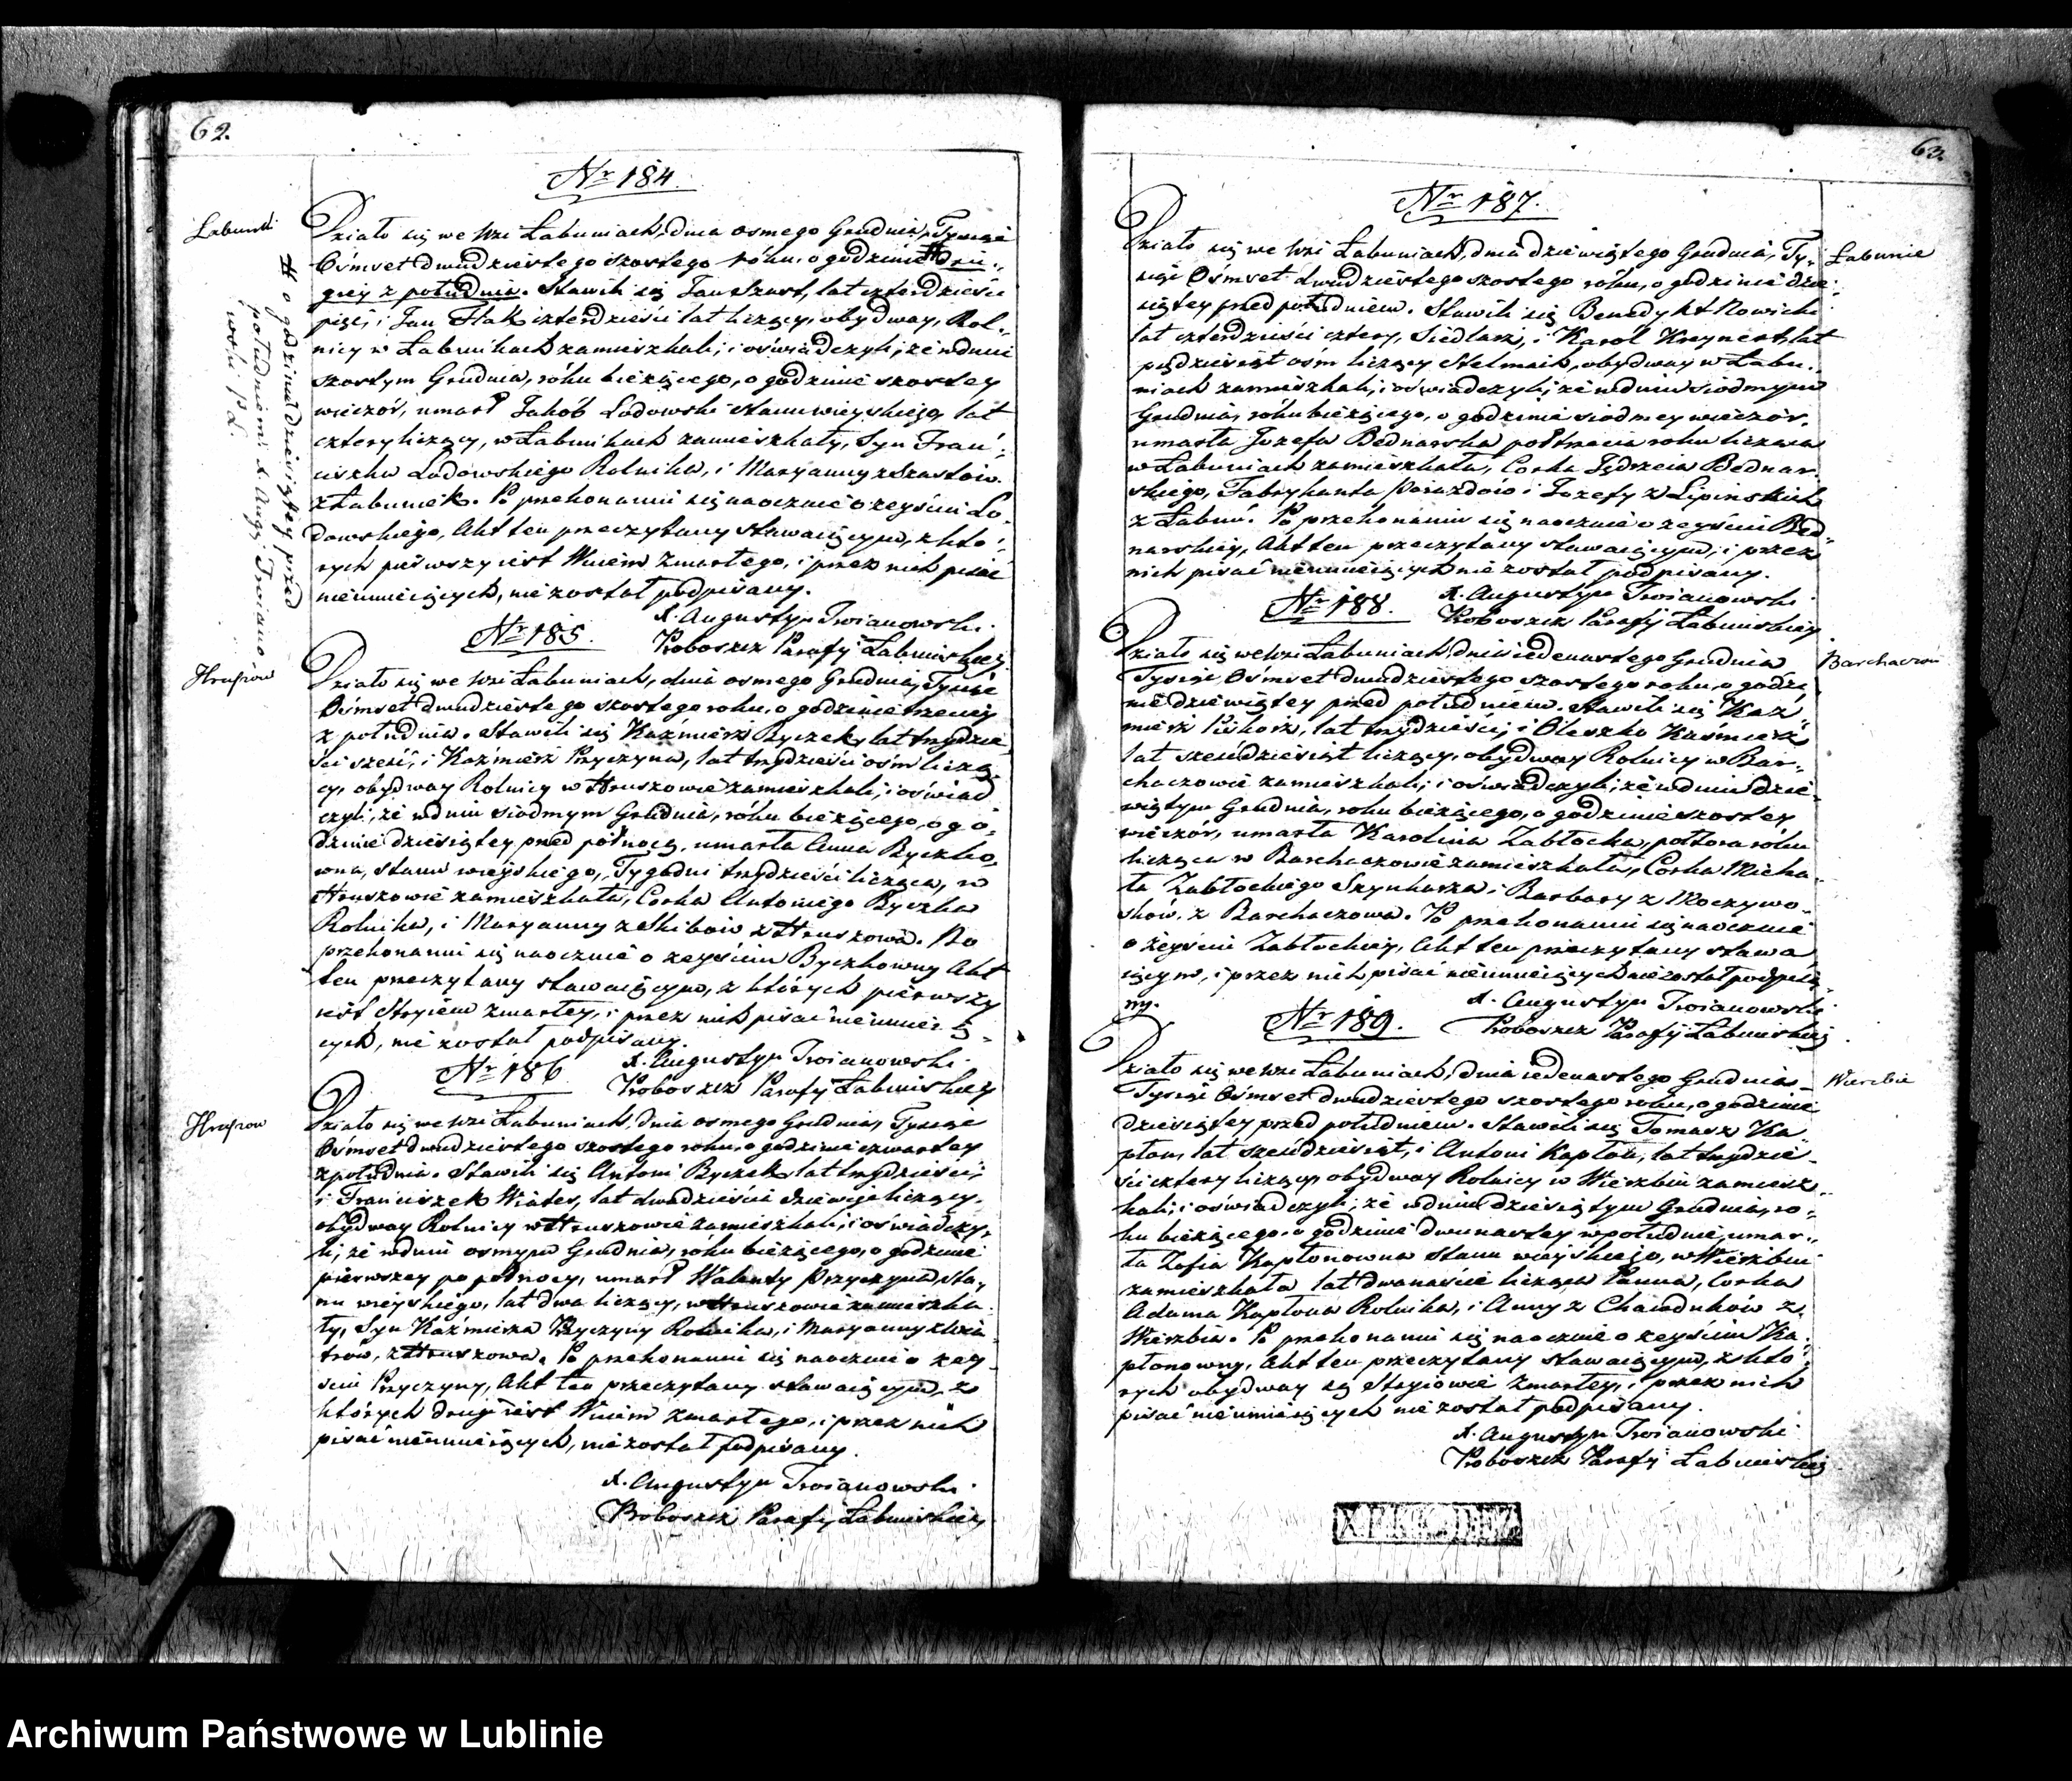 62.
Nr 184.
Łabuńki
Działo się we Wsi Łabuniach, dnia osmego Grudnia, Tysiąc
Ośmset dwudziestego szostego roku, o godzinie # dru:
giey z południa. Stawili się Jan Szust, lat czterdzieści
pięć, i Jan Flak czterdzieści lat liczący, obydway, Rol:
nicy w Łabuńkach zamieszkali, i oświadczyli, że w dniu
szostym Grudnia, roku bieżącego, o godzinie szostey
wieczór, umarł Jakób Lodowski stanu wieyskiego, lat
cztery liczący, w Łabuńkach zamieszkały, Syn Fran:
ciszka Lodowskiego Rolnika, i Maryanny z Szustów
z Łabuniek. Po przekonaniu się naocznie o zeyściu Lo:
dowskiego, Akt ten przeczytany stawaiącym, z któ:
rych pierwszy iest Wuiem Zmarłego, i przez nich pisać
nieumieiących, nie został podpisany.
X. Augustyn Troianowski
Proboszcz Parafij Łabuńskiey
# o godzinie dziesiątey przed
południem. X. Aug. Troiano
wski P. Ł.
Nr 185.
Hruszów
Działo się we Wsi Łabuniach, dnia osmego Grudnia, Tysiąc
Ośmset dwudziestego szostego roku, o godzinie trzeciey
z południa. Stawili się Kaźmierz Byczek, lat trzydzie
ści sześć, i Kaźmierz Przyczyna, lat trzydzieści ośm liczą
cy, obydway Rolnicy w Hruszowie zamieszkali, i oświad
czyli, że w dniu siodmym Grudnia, roku bieżącego, o go
dzinie dziesiątey przed połnocą, umarła Anna Byczko
wna, stanu wieyskiego, Tygodni trzydzieści licząca, w
Hruszowie zamieszkała, Corka Antoniego Byczka
Rolnika, i Maryanny z Skibów z Hruszowa. Po
przekonaniu się naocznie o zeyściu Byczkowny Akt
ten przeczytany stawaiącym, z których pierwszy
iest Stryiem zmarłey, i przez nich pisać nieumieią
cych, nie został podpisany.
X. Augustyn Troianowski
Proboszcz Parafij Łabuńskiey
Nr 186
Hruszow
Działo się we Wsi Łabuniach, dnia osmego Grudnia, Tysiąc
Ośmset dwudziestego szostego roku, o godzinie czwartey
z południa. Stawili się Antoni Byczek lat trzydzieści,
i Franciszek Wiater, lat dwadzieścia dziewięć liczący,
obydway Rolnicy w Hruszowie zamieszkali, i oświadczy
li, że w dniu osmym Grudnia, roku bieżącego, o godzinie
pierwszey po połnocy, umarł Walenty Przyczyna, sta
nu wieyskiego, lat dwa liczący, w Hruszowie zamieszka
ły, Syn Kaźmierza Przyczyny Rolnika, i Maryanny z Wia
trów, z Hruszowa. Po przekonaniu się naocznie o zey
ściu Przyczyny, Akt ten przeczytany stawaiącym, z
których drugi iest Wuiem zmarłego, i przez nich
pisać nieumieiących, nie został podpisany.
X. Augustyn Troianowski
Proboszcz Parafij Łabuńskiey
63.
Nr 187.
Łabunie
Działo się we Wsi Łabuniach, dnia dziewiątego Grudnia, Ty:
siąc Ośmset dwudziestego szostego roku, o godzinie dzie:
siątey przed południem. Stawili się Benedykt Nowicki
lat czterdzieści cztery, Siedlarz, i Karól Kreynert lat
pięćdziesiąt ośm liczący Stelmach, obydway w Łabu:
niach zamieszkali, i oświadczyli, że w dniu siodmym
Grudnia, roku bieżącego, o godzinie siodmey wieczór,
umarła Jozefa Bednarska połtrzecia roku licząca
w Łabuniach zamieszkała, Corka Jędrzeia Bednar
skiego, Fabrykanta Poiazdów i Jozefy z Lipinskich
z Łabuń. Po przekonaniu się naocznie o zeyściu Bed
narskiey, Akt ten przeczytany stawaiącym, i przez
nich pisać nieumieiących nie został podpisany.
X. Augustyn Troianowski
Proboszcz Parafij Łabuńskiey
Nr 188.
Barchaczow
Działo się we Wsi Łabuniach, dnia iedenastego Grudnia
Tysiąc Ośmset dwudziestego szostego roku, o godzi
nie dziewiątey przed południem. Stawili się Kaź
mierz Pikorz, lat trzydzieści, i Oleszko Kaźmierz
lat sześdziesiąt liczący, obydway Rolnicy w Bar:
chaczowie zamieszkali, i oświadczyli, że w dniu dzie
wiątym Grudnia, roku bieżącego, o godzinie szostey
wieczór, umarła Karolina Zabłocka, połtora roku
licząca w Barchaczowie zamieszkała, Corka Micha
ła Zabłockiego Szynkarza i Barbary z Moczywo
sków, z Barchaczowa. Po przekonaniu się naocznie
o zeyściu Zabłockiey, Akt ten przeczytany stawa
iącym, i przez nich pisać nieumieiących nie został podpisa
ny.
X. Augustyn Troianowski
Proboszcz Parafij Łabuńskiey
Nr 189.
Wierzbie
Działo się we Wsi Łabuniach, dnia iedenastego Grudnia
Tysiąc Ośmset dwudziestego szostego roku, o godzinie
dziesiątey przed południem. Stawili się Tomasz Ka
płon, lat sześdziesiąt, i Antoni Kapłon, lat trzydzie
ści cztery liczący obydway Rolnicy w Wierzbiu zamiesz
kali, i oświadczyli, że w dniu dziesiątym Grudnia, ro:
ku bieżącego, o godzinie dwunastey w południe, umar:
ła Zofia Kapłonowna stanu wieyskiego, w Wierzbiu
zamieszkała lat dwanaście licząca Panna, Corka
Adama Kapłona Rolnika, i Anny z Chawduków z
Wierzbia. Po przekonaniu się naocznie o zeyściu Ka:
płonowny, Akt ten przeczytany stawaiącym, z któ
rych obydway są Stryiowie Zmarłey, i przez nich
pisać nieumieiących nie został podpisany.
X. Augustyn Troianowski
Proboszcz Parafij Łabuńskiey
Archiwum Państwowe w Lublinie